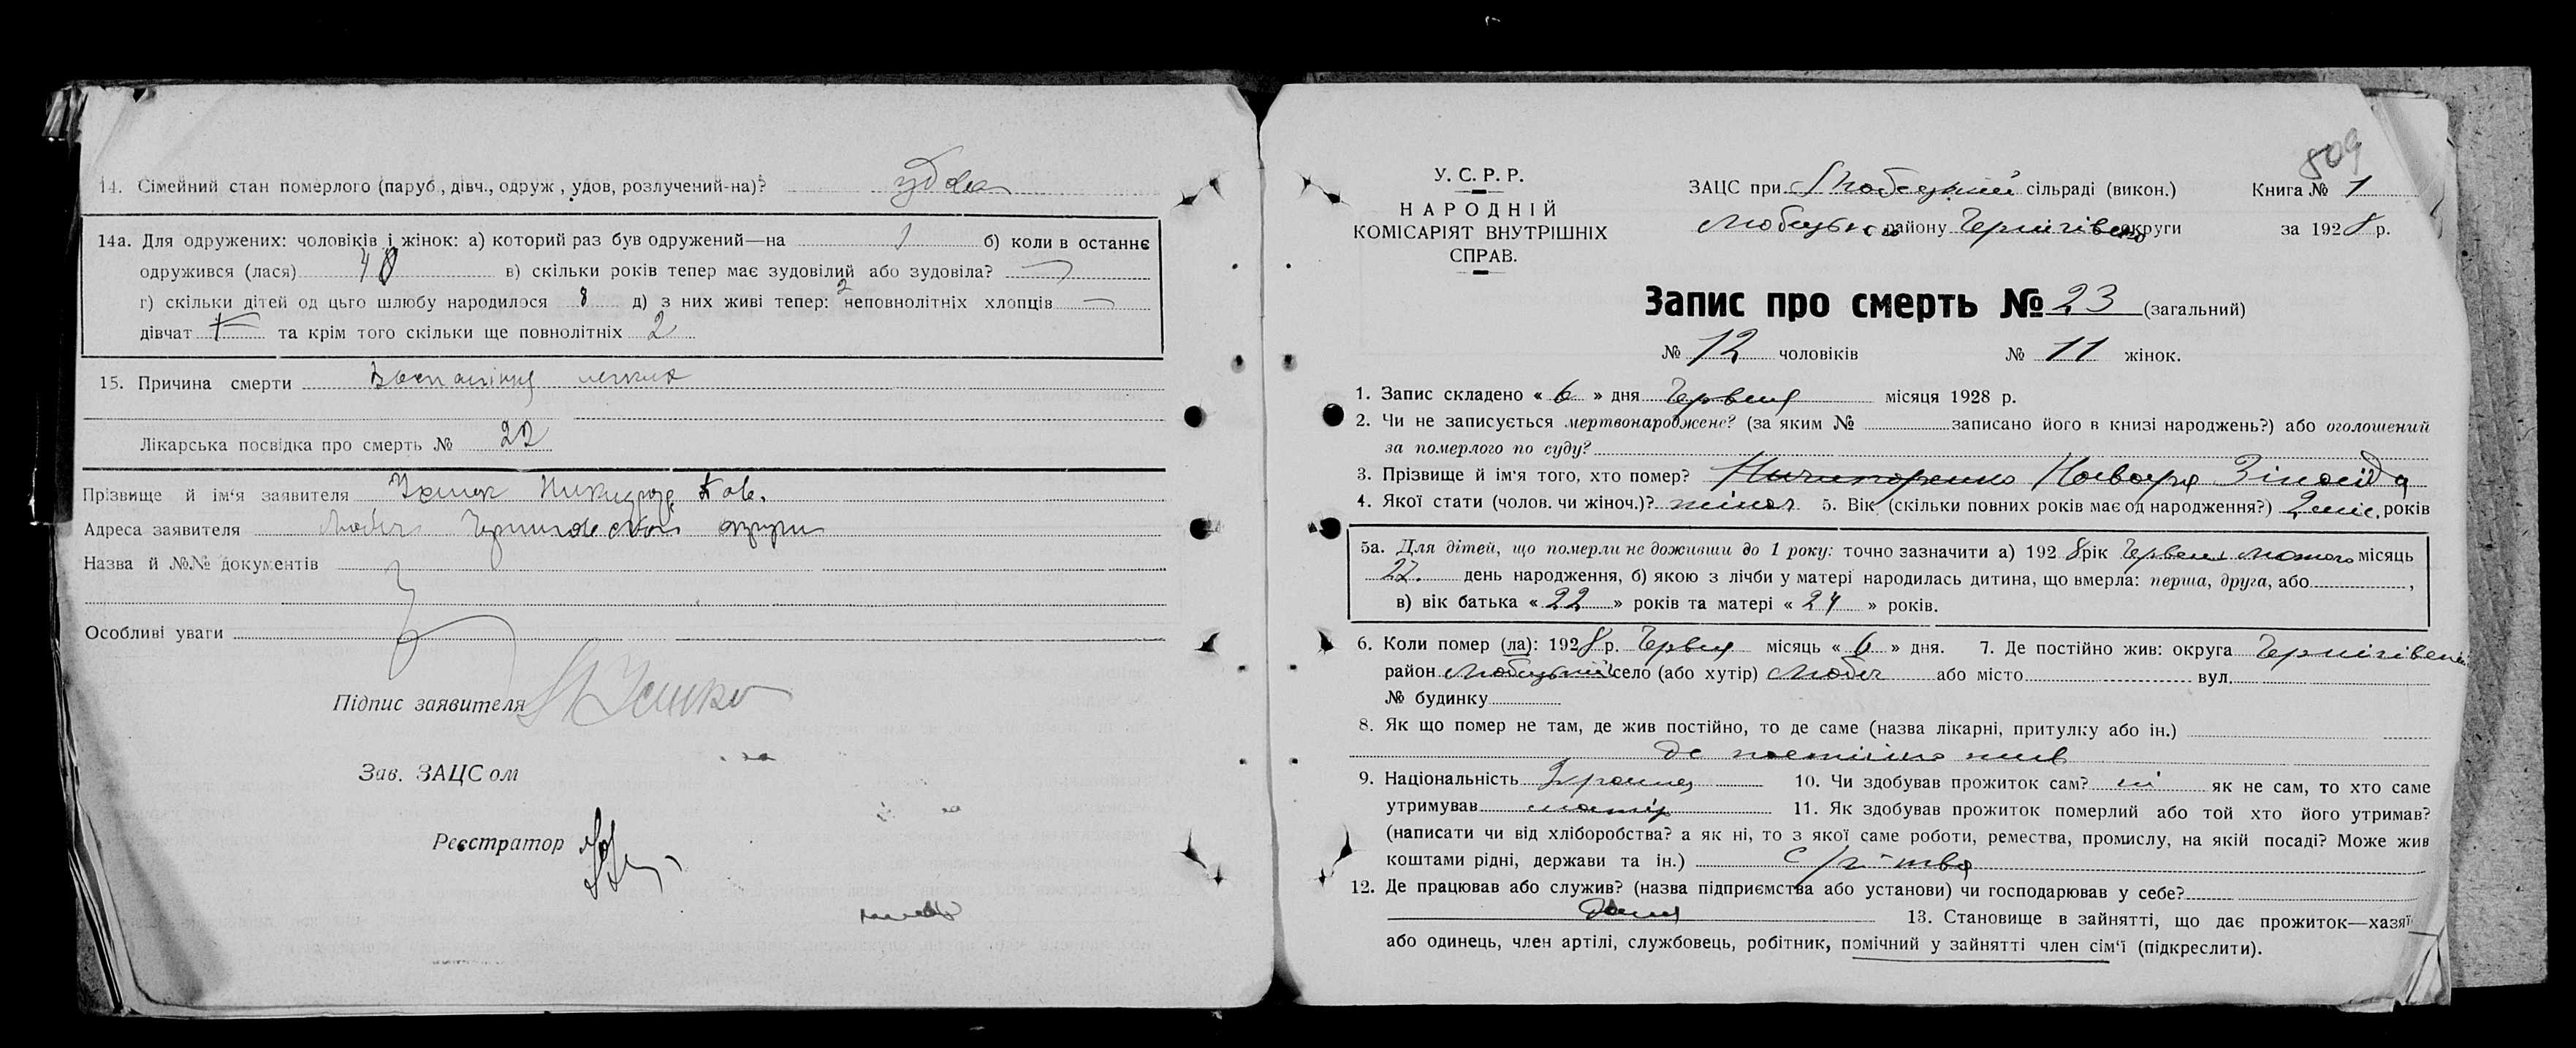 14. Сімейний стан померлого (паруб, дівч., одруж, удов, розлучений-на)? удова
14а. Для одружених: чоловіків і жінок: а) которий раз був одружений—на 1 б) коли в останнє
одружився (лася) 48 в) скільки років тепер має зудовілий або зудовіла? —
г) скільки дітей од цього шлюбу народилося 8 д) з них живі тепер: 2 неповнолітніх хлопців —
дівчат та крім того скільки ще повнолітніх 2
15. Причина смерти легких
Лікарська посвідка про смерть № 22
Прізвище й ім‘я заявителя
Адреса заявителя Любеч округи
Назва й №№ документів
Особливі уваги
Підпис заявителя
Зав. ЗАЦС ом
Реєстратор
809
У. С. Р. Р.
НАРОДНІЙ
КОМІСАРІЯТ ВНУТРІШНІХ
СПРАВ.
ЗАЦС при Любецькій сільраді (викон.) Книга № 1
Любецького району Чернігівсько округи за 1928 р.
Запис про смерть № 23 (загальний)
№ 12 чоловіків № 11 жінок.
1. Запис складено « 6 » дня Червня місяця 1928 р.
2. Чи не записується мертвонароджене? (за яким № записано його в книзі народжень?) або оголошений
за померлого по суду?
3. Прізвище й ім'я того, хто помер? Зіноїда
4. Якої стати (чолов. чи жіноч.)? жіноч 5. Вік (скільки повних років має од народження?) 2 міс. років
5а. Для дітей, що померли не доживши до 1 року: точно зазначити а) 1928 рік Червень Лютого місяць
22. день народження, б) якою з лічби у матері народилась дитина, що вмерла: перша, друга, або ,
в) вік батька « 22 » років та матері « 24 » років.
6. Коли помер (ла): 1928 р. Червня місяць « 6 » дня. 7. Де постійно жив: округа Чернігівськ
район Любецький село (або хутір) Любеч або місто вул.
№ будинку
8. Як що помер не там, де жив постійно, то де саме (назва лікарні, притулку або ін.)
де постійно жив
9. Національність Українец 10. Чи здобував прожиток сам? ні як не сам, то хто саме
утримував матір 11. Як здобував прожиток померлий або той хто його утримав?
(написати чи від хліборобства? а як ні, то з якої саме роботи, ремества, промислу, на якій посаді? Може жив
коштами рідні, держави та ін.)
12. Де працював або служив? (назва підприємства або установи) чи господарював у себе?
13. Становище в зайнятті, що дає прожиток—хазяї
або одинець, член артілі, службовець, робітник, помічний у зайнятті член сім‘ї (підкреслити).